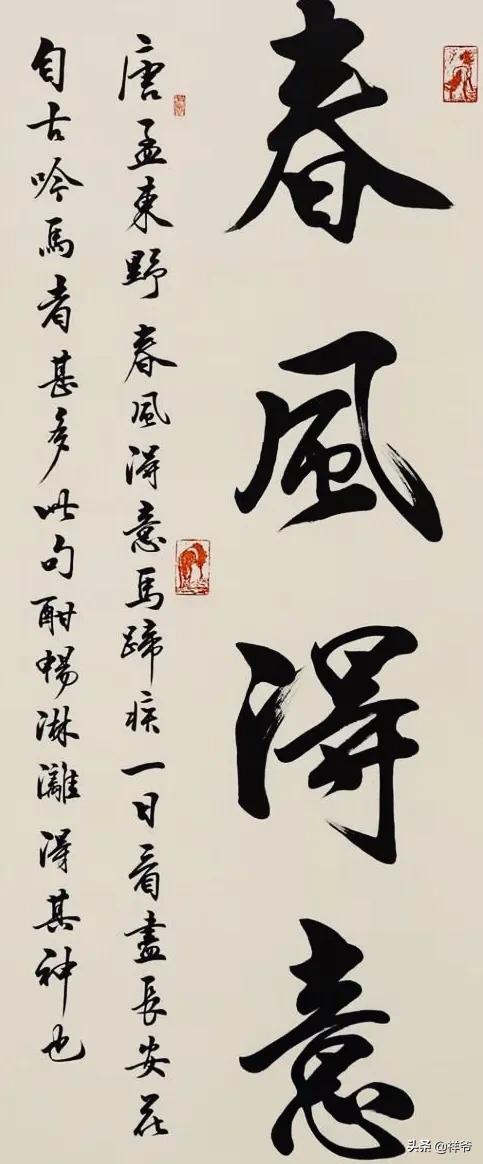 春風得意
唐孟東野春風得意馬蹄疾一日看盡長安花
自古吟馬者甚多此句酣暢淋灕得其神也
头条 @祥爷